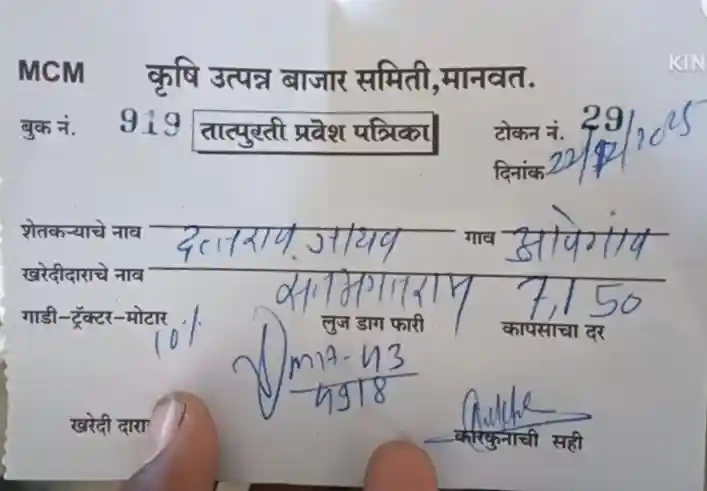 KIN
MCM कृषि उत्पन्न बाजार समिती,मानवत.
बुक नं. 919 तात्पुरती प्रवेश पत्रिका टोकन नं. 29
दिनांक 22/12/2025
शेतकऱ्याचे नाव दत्तराव जाधव गाव
खरेदीदाराचे नाव 7,150
गाडी-ट्रॅक्टर-मोटार लुज डाग फारी कापसाचा दर
10%
खरेदी दारा कारकुनाची सही